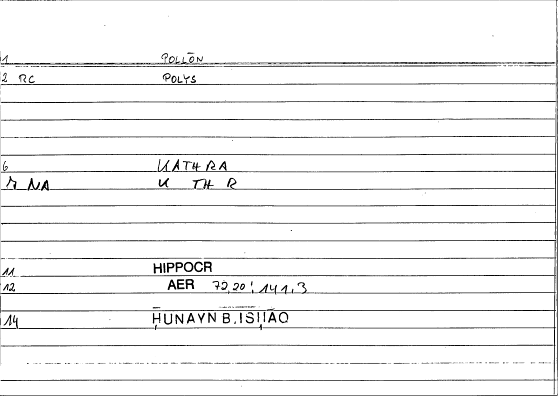 1 POLLŌN
2 RC POLYS
6 KATHRA
7 NA K TH R
11 HIPPOCR
12 AER 72,20; 141,3
14 ḤUNAYN B. ISḤĀQ